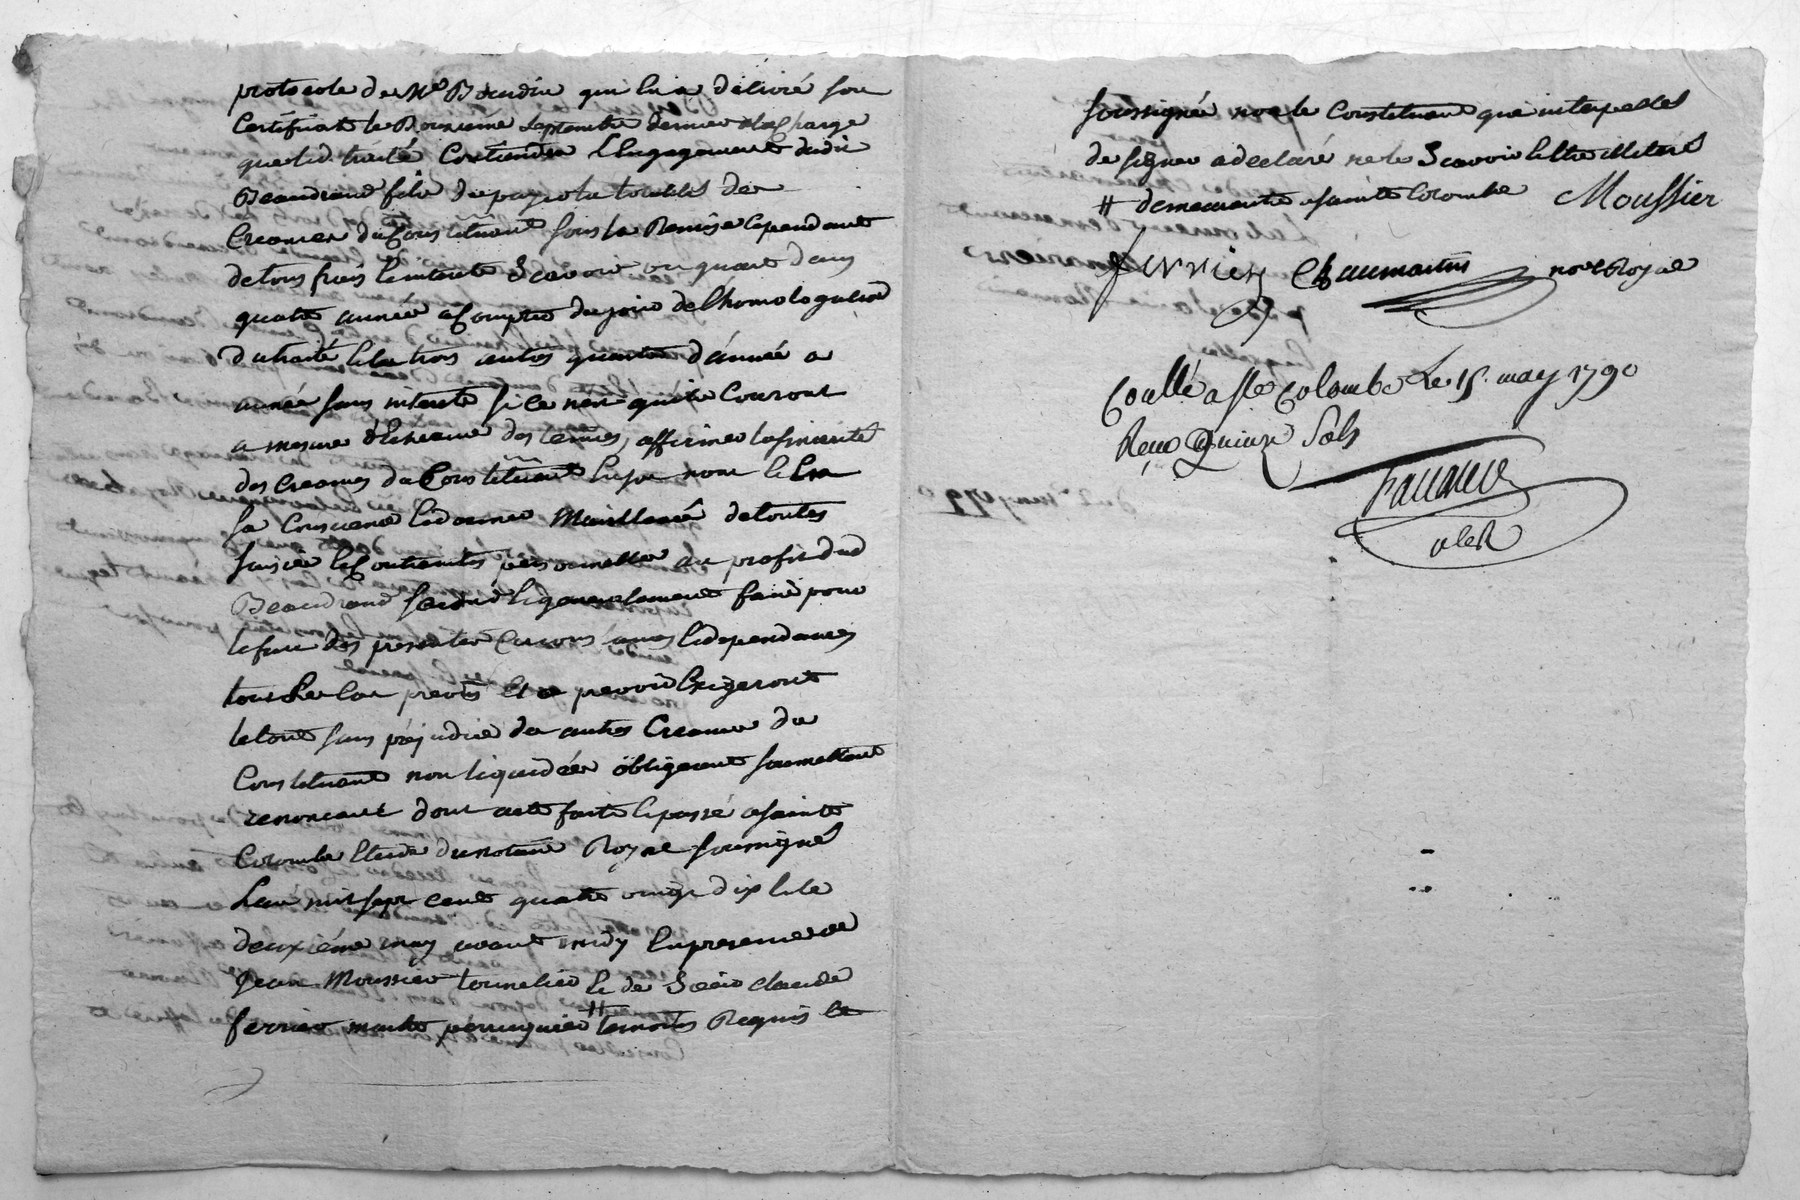 protocole de Me Beaudin qui lui a délivré son
Certificat le Douzieme Septembre dernier ala Charge
que led. traité Contiendra L'Engagement dudit
Beaudrand fils de payer la totalité des
Creances du Constituant sous la Remise Cependant
de tous frais & interets Scavoir un quart dans
quatre année a Compter du jour de l'homologation
du traité & les trois autres quarts d'année a
année sans interets si ce n'est qu'ils Couront
a mesure d'Echeance des termes, affirmer la sincerité
des Creances du Constituant
sa Conscience donner Mainlevée de toutes
saisies & Contraintes personnelles au profit dud
Beaudrand & generalement faire pour
le fait des presentes Circonstances & dependances
tous les Cas prevus et a prevoir Exigeront
le tout sans préjudice des autres Creances du
Constituant non liquidées obligeant soumettant
renoncant dont acte fait & passé a sainte
Colombe Etude du notaire Royal soussigné
L'an mil sept cent quatre vingt dix & le
deuxiéme may avant midy En presence de
Jean Moussier tonnelier & de Sieur claude
ferrier maitre perruquier # temoins Requis et
soussignés non le Constituant que interpellé
de signer a declaré ne le Scavoir lettre illiteré
# demeurants a sainte Colombe Moussier
ferrier Chaumartin nore Royal
Conllé a Ste Colombe Le 15 may 1790
Reçu Quinze Sols